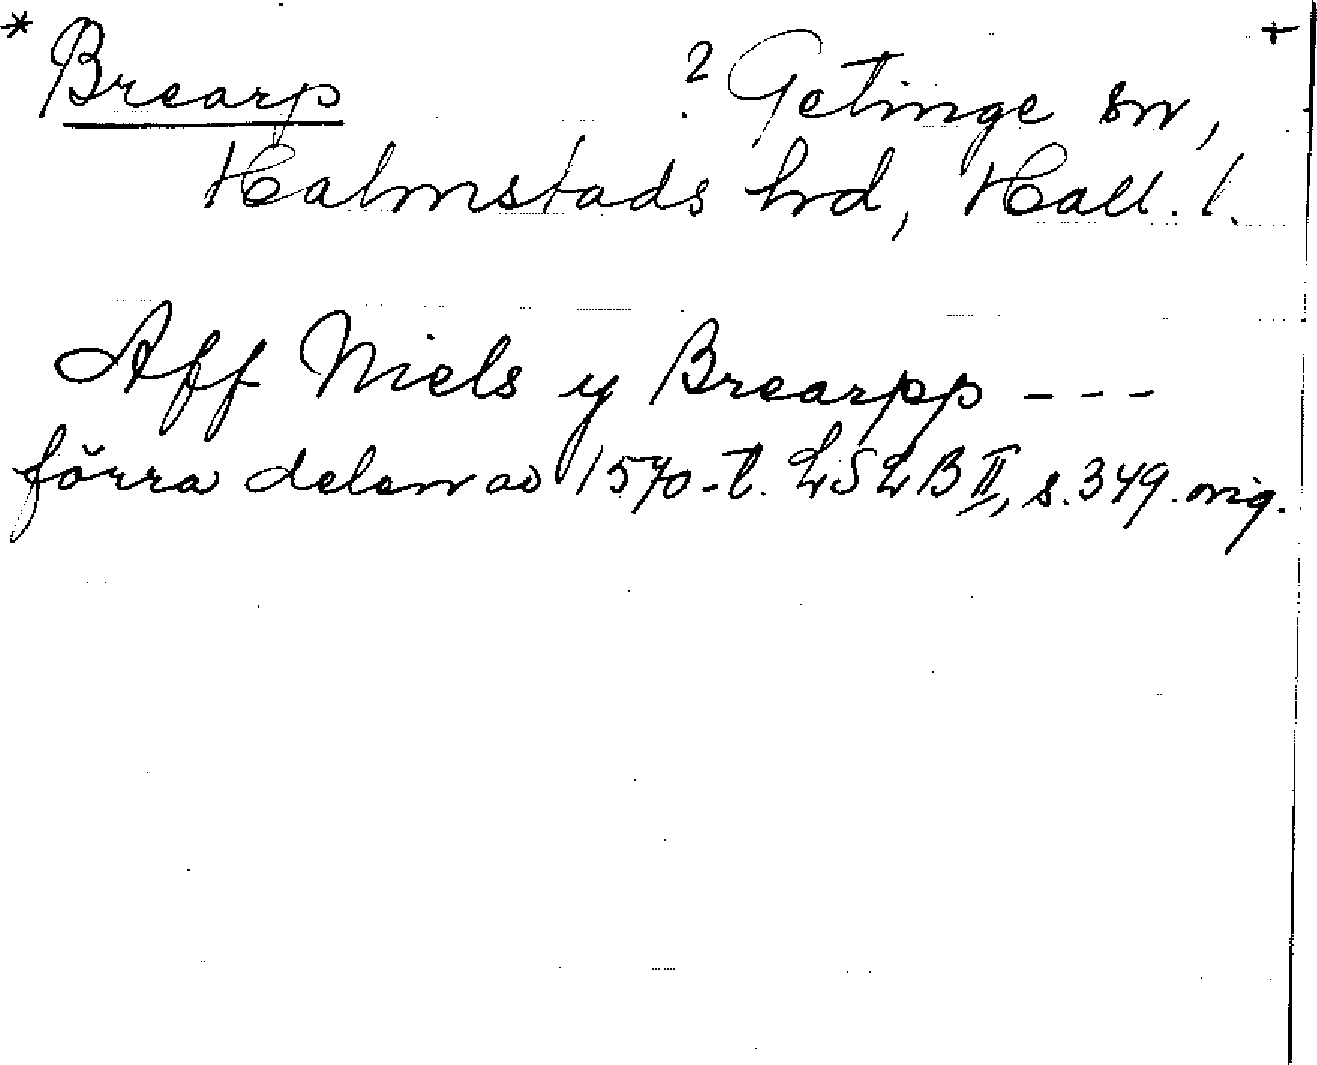 * Brearp ? Getinge sn, +
Halmstads hrd, Hall. l.
Aff Niels y Brearpp - - -
förra delen av 1570-t. LSLB II, s. 349. orig.